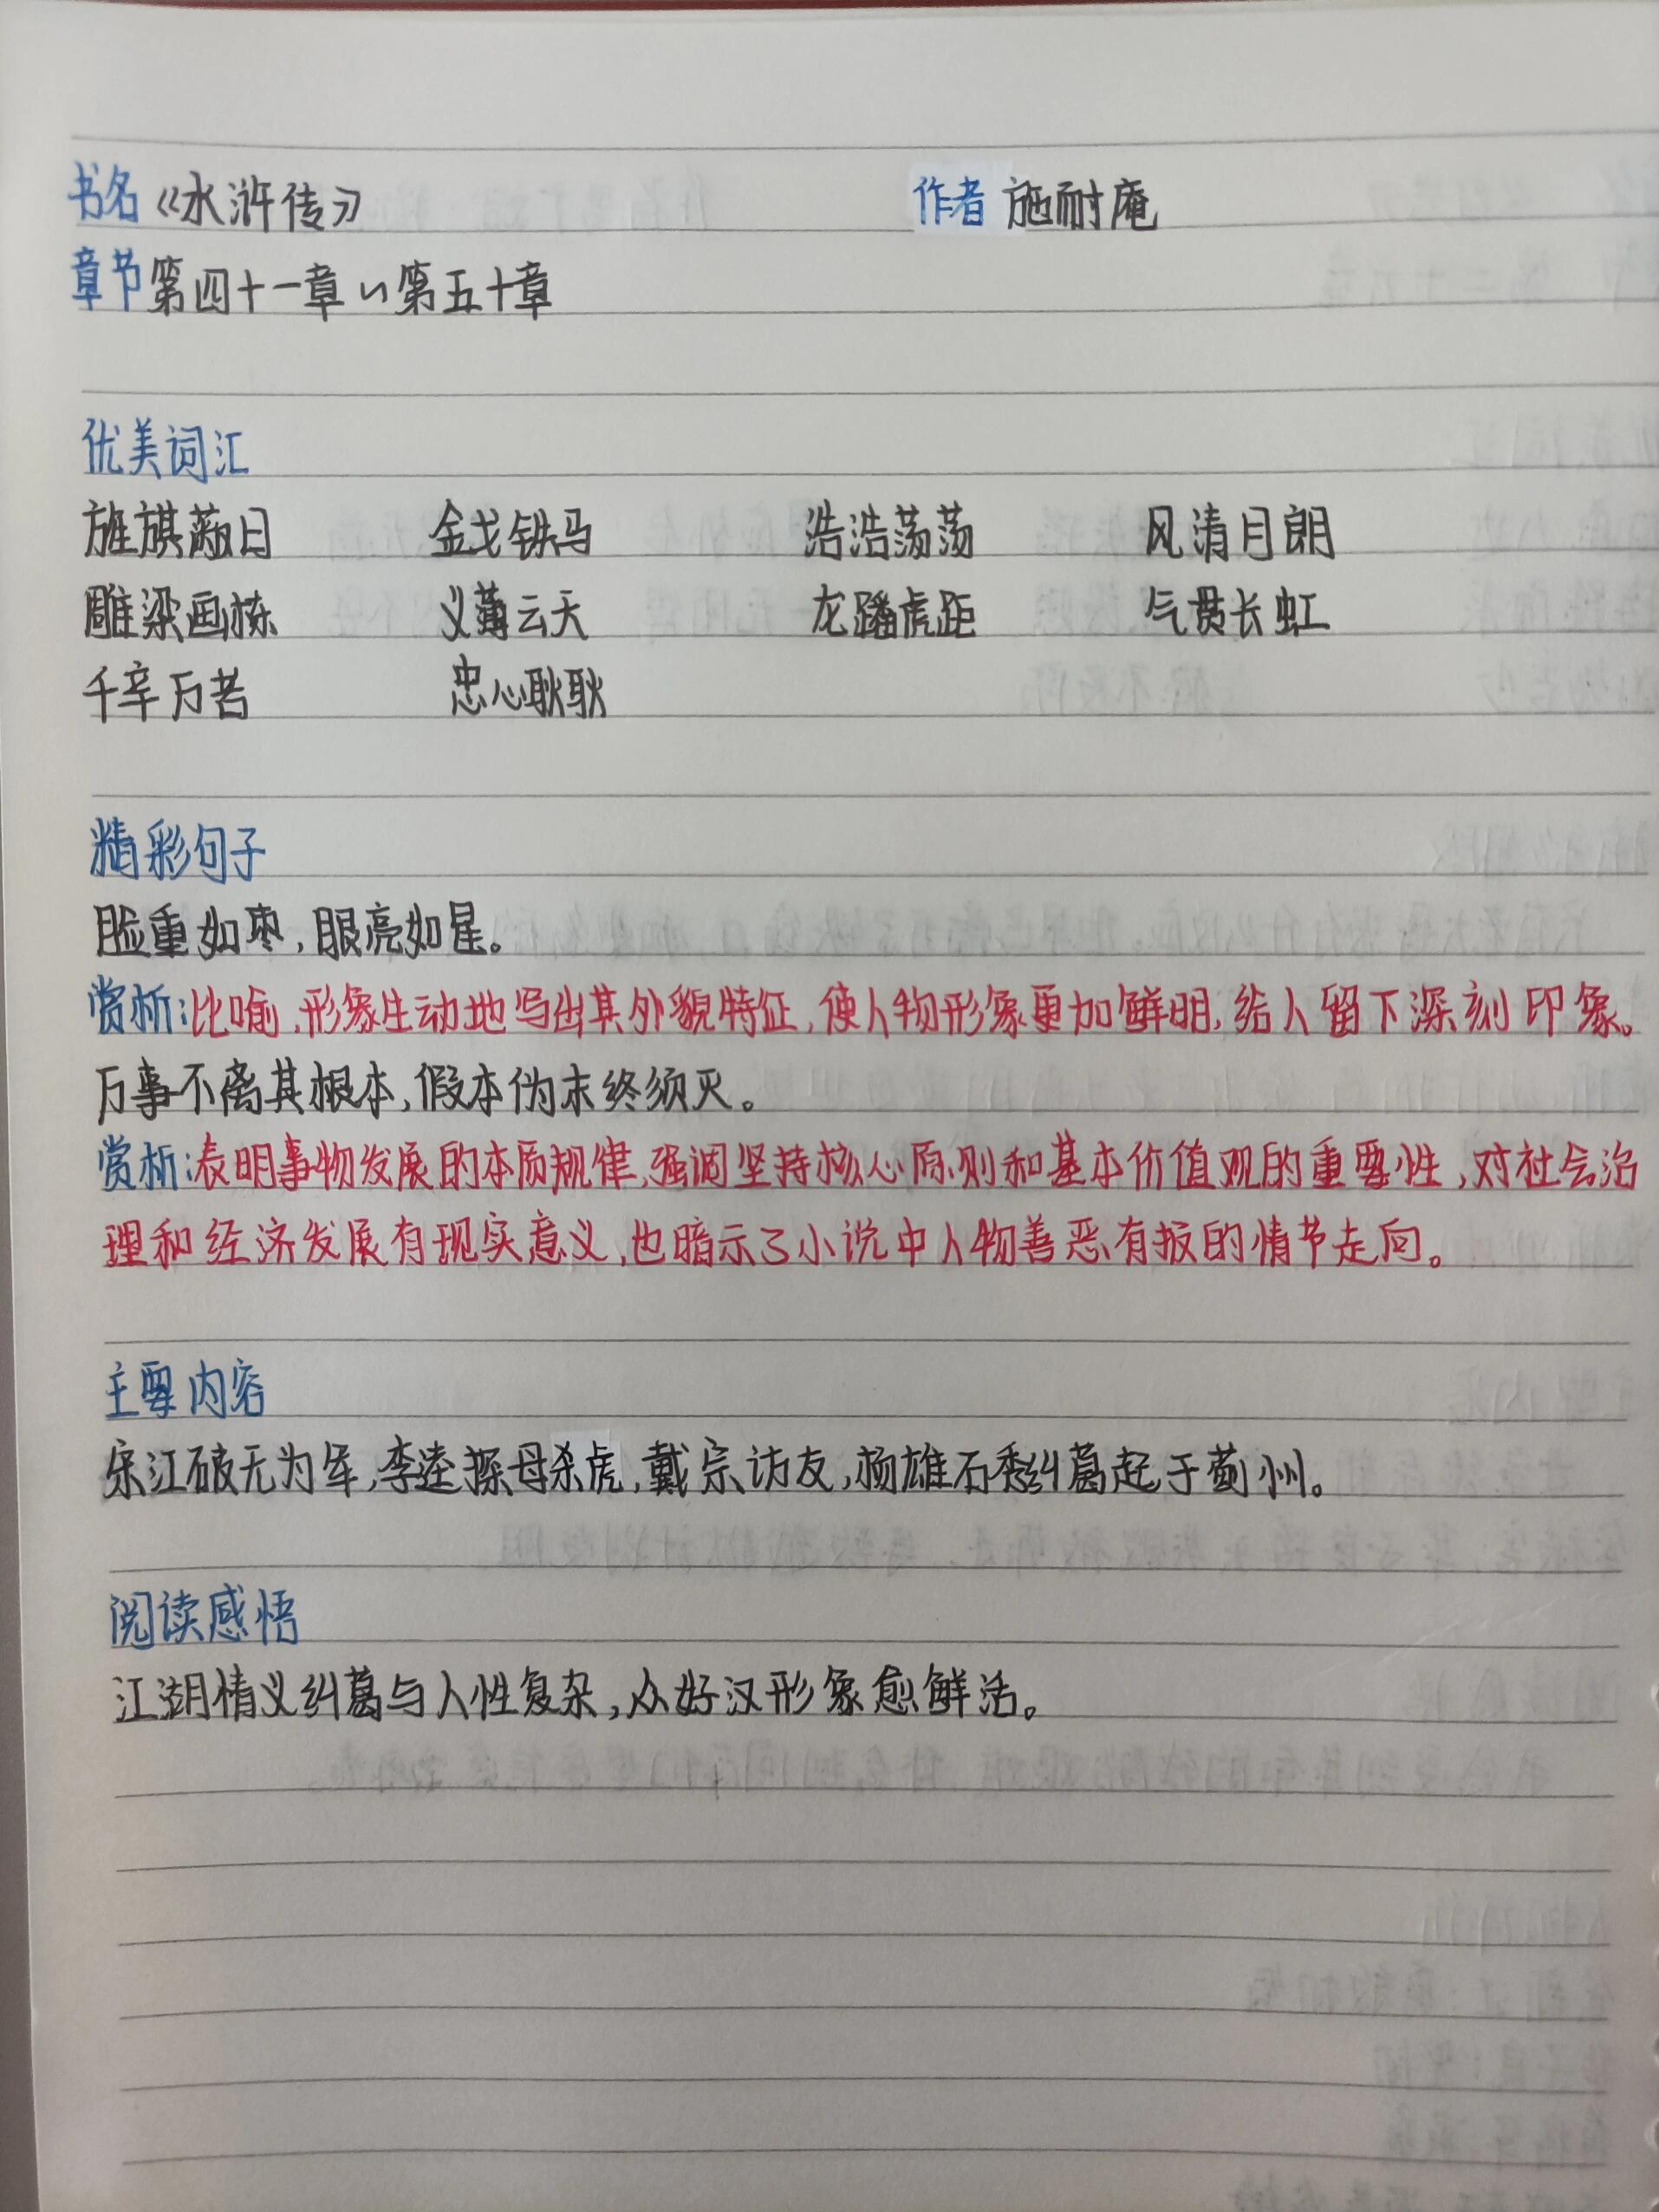 书名《水浒传》 作者 施耐庵
章节 第四十一章~第五十章
优美词汇
旌旗蔽日 金戈铁马 浩浩荡荡 风清月朗
雕梁画栋 义薄云天 龙蟠虎距 气贯长虹
千辛万苦 忠心耿耿
精彩句子
脸重如枣,眼亮如星。
赏析:比喻,形象生动地写出其外貌特征,使人物形象更加鲜明,给人留下深刻印象。
万事不离其根本,假本伪末终须灭。
赏析:表明事物发展的本质规律,强调坚持核心原则和基本价值观的重要性,对社会治
理和经济发展有现实意义,也暗示了小说中人物善恶有报的情节走向。
主要内容
宋江破无为军,李逵探母杀虎,戴宗访友,杨雄石秀纠葛起于蓟州。
阅读感悟
江湖情义纠葛与人性复杂,众好汉形象愈鲜活。